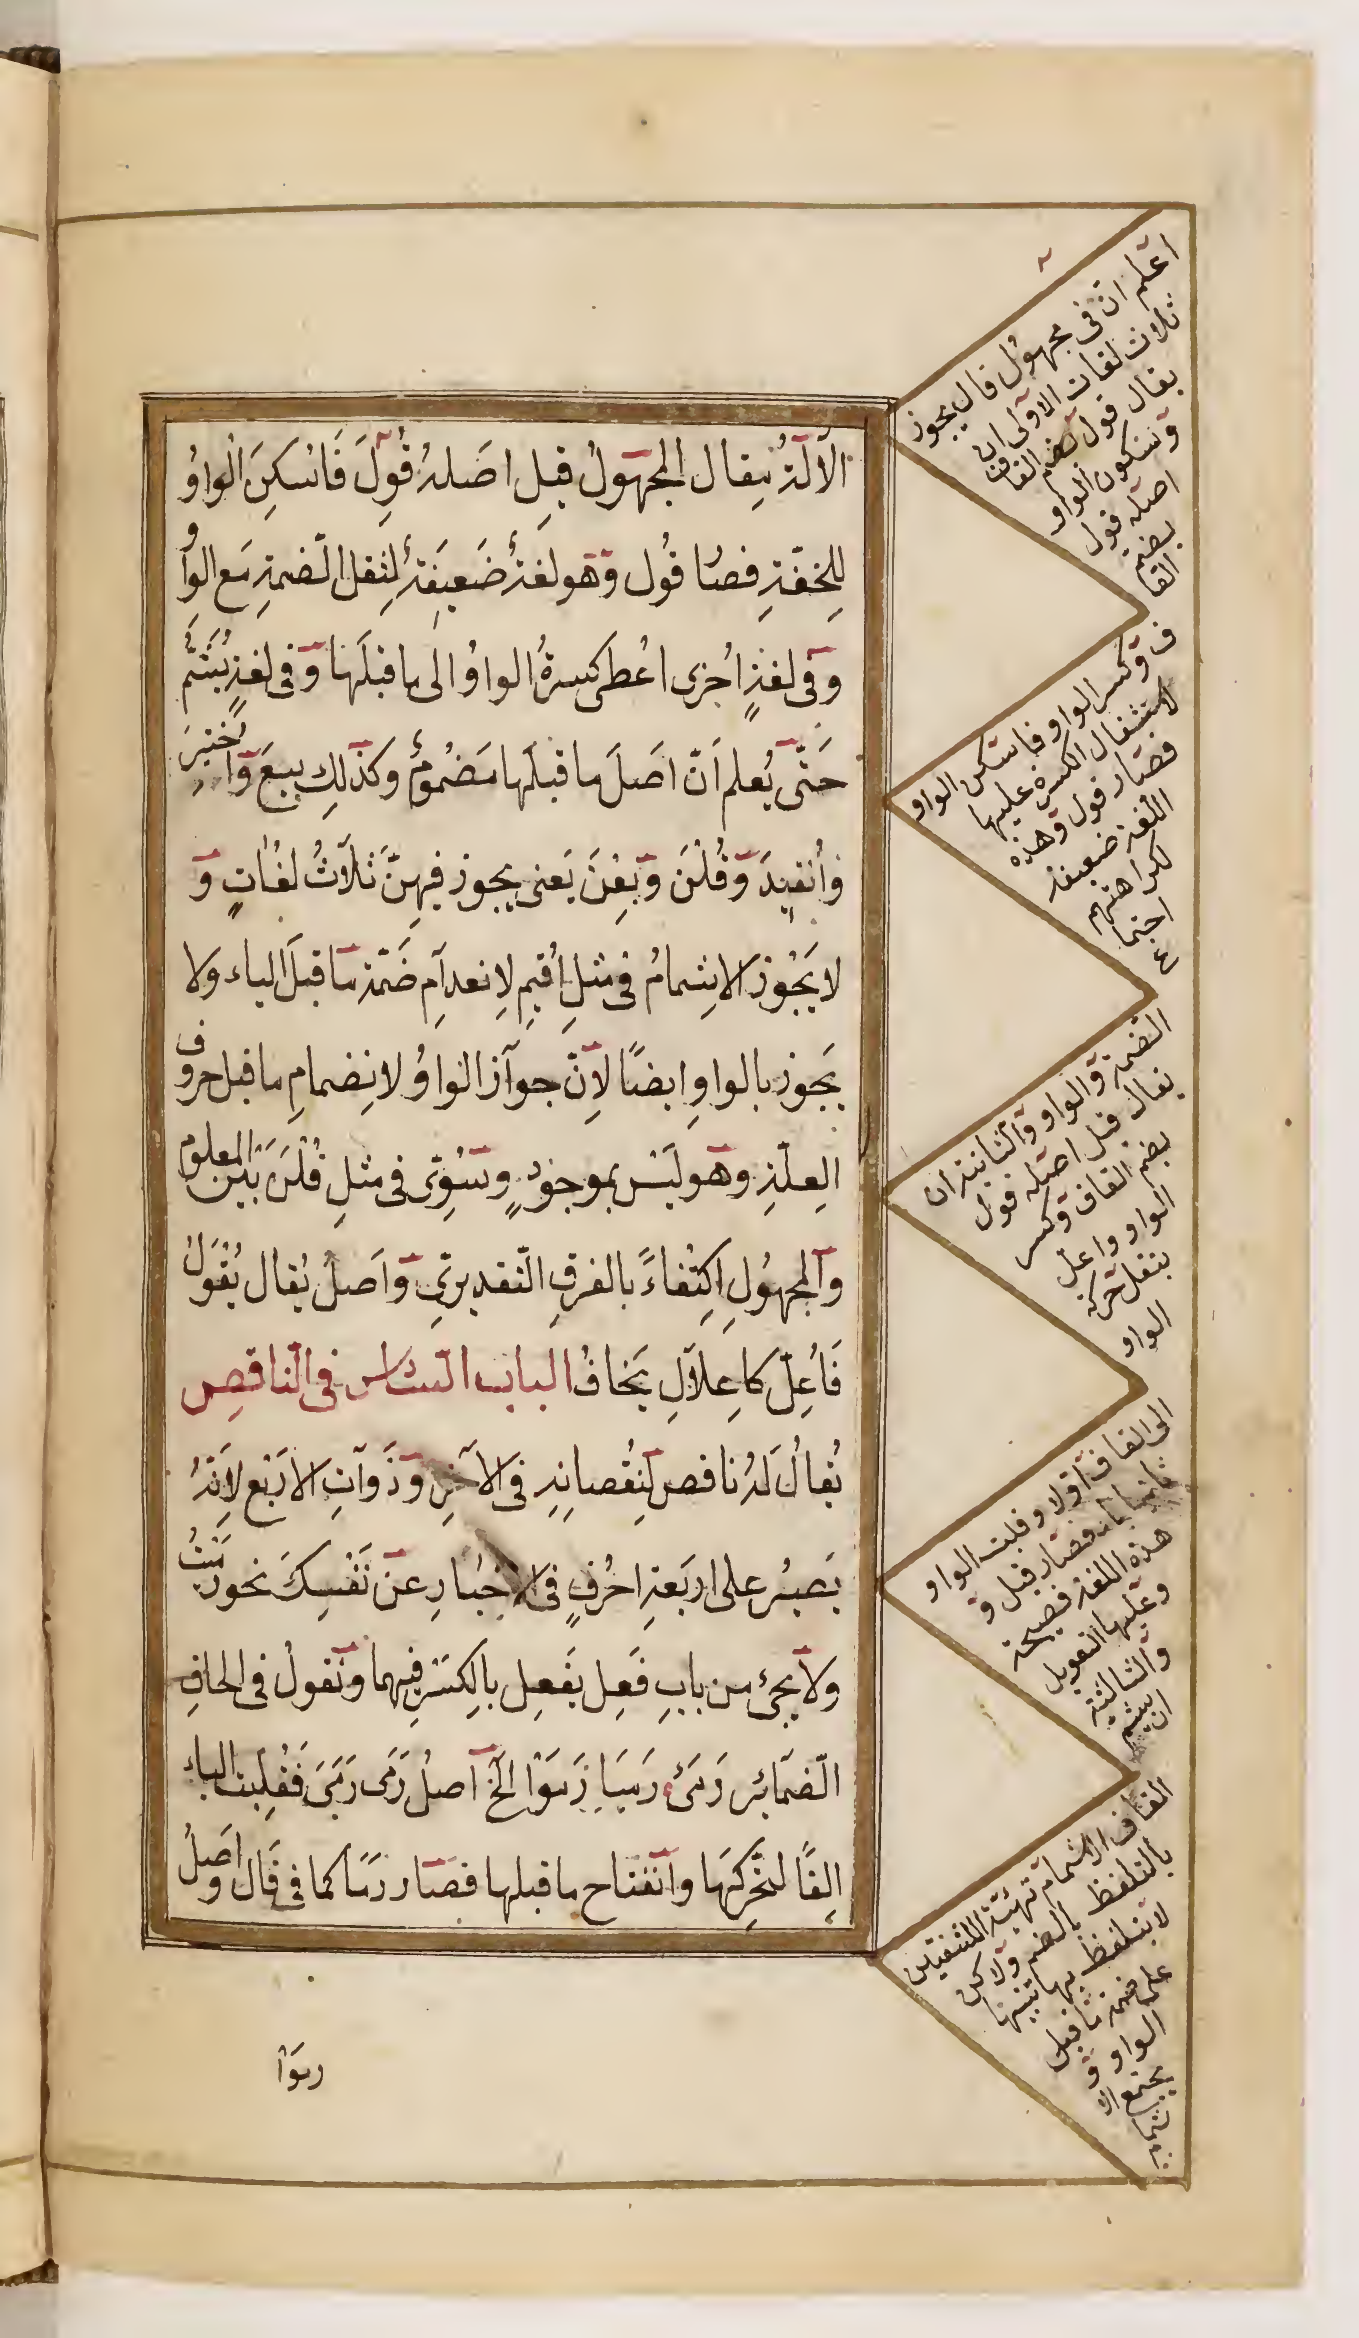 الآلة يقال المجهول قيل اصله قُوِلَ فَاُسكِنَ الواوُ
لِلخفّةِ فصار قُول وهو لغةٌ ضَعيفَةٌ لِثقل الضّمةِ مَع الواوِ
وَفى لغةٍ اُخرى اُعطى كسرةُ الواوُ الى ما قبلَها وَفى لغةٍ يُشَمُّ
حَتّى يُعلم اَنّ اصَلَ ما قبلَها مَضمُومٌ وكذلِك بيعَ وَاُختيرَ
وَاُنقيدَ وَقُلْنَ وَبِعْنَ يَعنى يجوز فيهِنَّ ثَلَاثُ لغاتٍ وَ
لا يَجُوز الاِشمامُ فى مثلِ اُقيمِ لِانعدامِ ضَمّة مَا قبلَ الياء ولا
يَجوز بالواوِ ايضًا لاِنّ جوازَ الواوُ لانِضمامِ ما قبل حروف
العِلّةِ وهو ليَسْ بموجودٍ وسُوِّى فى مثلِ قُلْنَ بَيْنَ المعلوم
وَالمجهُولِ اِكِتفاءً بالفرقِ التّقديرىِّ وَاَصلُ يُقال يُقْوَلُ
فَاُعِلّ كاِعِلالِ يَخافُ الباب السّادس فى النّاقصِ
يُقالُ لَهُ ناقص لنِقُصانِهِ فى الآخِرِ وَذَواتِ الاَربَع لِاَنّهُ
يَصيرُ على اربَعةِ احرُفٍ فى الاخبارِ عنَ نَفْسِكَ نحو رَمَيْتُ
ولا يجئ من بابِ فَعِل يَفعِل بالكِسَرِ فيهما وتَقولُ فى الحاقِ
الضّمَائِرِ رَمَىٰ رَمَيَا رَمَوْا الخ اصلُ رَمَى رَمَىَ فَقُلِبَت الياء
الِفًا لتحَرّكِهَا وانفتاح ما قبلها فصَار رمَا كما فى قَال واَصلُ
رموا
اعلم انّ فى مجهول قال يجوز
ثلاث لغات الاوّلى ان
يقال قول بضم القاف
وسكون الواو
اصله قول
بضم
القا
ف وكسر الواو فاسكن الواو
لاستثقال الكسرة عليها
فصَار قول وَهذه
اللّغة ضعيفة
لكراهتهم
اجتما
ع
الضمة والواو والثانية ان
يقال قيل اصله قول
بضم القاف وكسر
الواو واعلّ
بنقل حركة
الواو
الى القاف اولا وقلبت الواو
ثانيا ياء فصار قيل وَ
هذه اللغة فصيحة
وعليها التعويل
والثّالثة
ان يشم
القاف الاشمام تهيئة الشفتين
بالتلفظ بالضم ولاكن
لا يتلفظ بها تنبيها
على ضمة ما قبل
الواو وَ